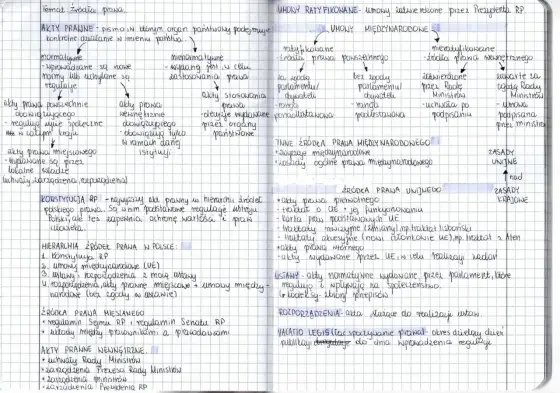 Temat: Źródła prawa.
AKTY PRAWNE - pismo, w którym organ państwowy podejmuje
konkretne działanie w imieniu państwa
normatywne
- wprowadzane są nowe
normy lub uchylane są
regulacje
nienormatywne
- wydawane są w celu
zastosowania prawa
akty prawa powszechnie
obowiązującego
- regulują życie społeczne
w całym kraju
akty prawa
wewnętrznie
obowiązującego
- obowiązują tylko
w ramach danej
instytucji
akty stosowania
prawa
- decyzje wydawane
przez organy
państwowe
akty prawa miejscowego
- wydawane są przez
lokalne władze
(uchwały, zarządzenia, rozporządzenia)
KONSTYTUCJA RP - najwyższy akt prawny w hierarchii źródeł
polskiego prawa. Są w nim podstawowe regulacje ustroju
Polski, ale też zapewnia ochronę wartości i praw
człowieka.
HIERARCHIA ŹRÓDEŁ PRAWA W POLSCE:
1. Konstytucja RP
2. umowy międzynarodowe (UE)
3. ustawy i rozporządzenia z mocą ustawy
4. rozporządzenia, akty prawne miejscowe i umowy między-
narodowe (bez zgody w ustawie)
ŹRÓDŁA PRAWA
• regulamin Sejmu RP i regulamin Senatu RP
• układy między pracownikami a pracodawcami
AKTY PRAWNE WEWNĘTRZNE:
• uchwały Rady Ministrów
• zarządzenia Prezesa Rady Ministrów
• zarządzenia ministrów
• zarządzenia Prezydenta RP
UMOWY RATYFIKOWANE - umowy zatwierdzone przez Prezydenta RP.
UMOWY MIĘDZYNARODOWE
ratyfikowane
- źródła prawa powszechnego
nieratyfikowane
- źródła prawa wewnętrznego
za zgodą
parlamentu/
obywateli
- ranga
ponadustawowa
bez zgody
parlamentu/
obywateli
- ranga
podustawowa
zatwierdzone
przez Radę
Ministrów
- uchwała po
podpisaniu
zawarte za
zgodą Rady
Ministrów
- umowa
podpisana
przez ministra
INNE ŹRÓDŁA PRAWA MIĘDZYNARODOWEGO
• zwyczaje międzynarodowe
• zasady ogólne prawa międzynarodowego
ZASADY
UNIJNE
↑ nad
ZASADY
KRAJOWE
ŹRÓDŁA PRAWA UNIJNEGO
• akty prawa pierwotnego
- traktat o UE i jej funkcjonowaniu
- karta praw podstawowych UE
- traktaty rewizyjne (zmiany) np. traktat lizboński
- traktaty akcesyjne (nowi członkowie UE) np. traktat z Aten
• akty prawa wtórnego
- akty wydawane przez UE w celu realizacji zadań
USTAWY - akty normatywne wydawane przez parlament, które
regulują i wpływają na społeczeństwo.
↳ kodeksy - zbiory przepisów
ROZPORZĄDZENIA - akta służące do realizacji ustaw.
VACATIO LEGIS - okres dzielący dzień
publikacji do dnia wprowadzenia regulacji